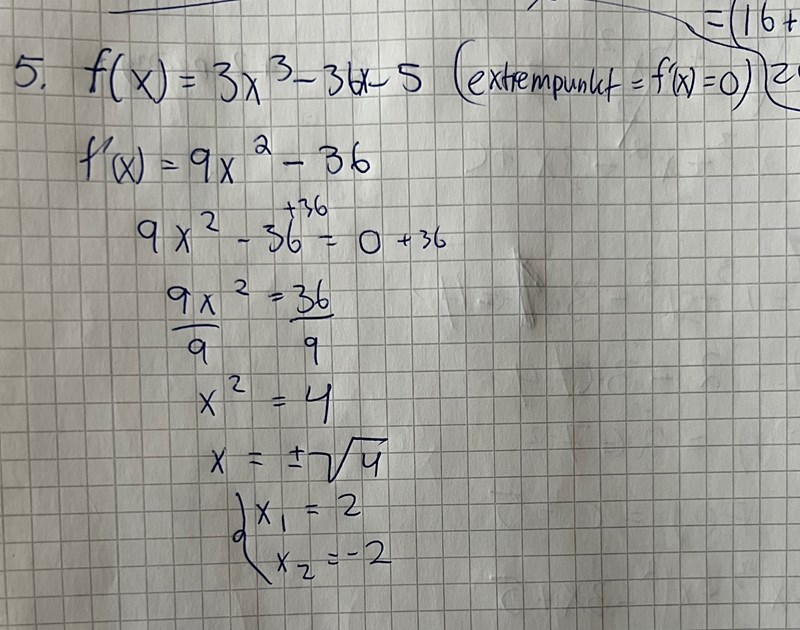 =(16+
5. f(x) = 3x³ - 36x - 5 (extrempunkt = f'(x) = 0)
f'(x) = 9x² - 36
9x² - 36 +36 = 0 +36
9x²/9 = 36/9
x² = 4
x = ±√4
{x₁ = 2
x₂ = -2